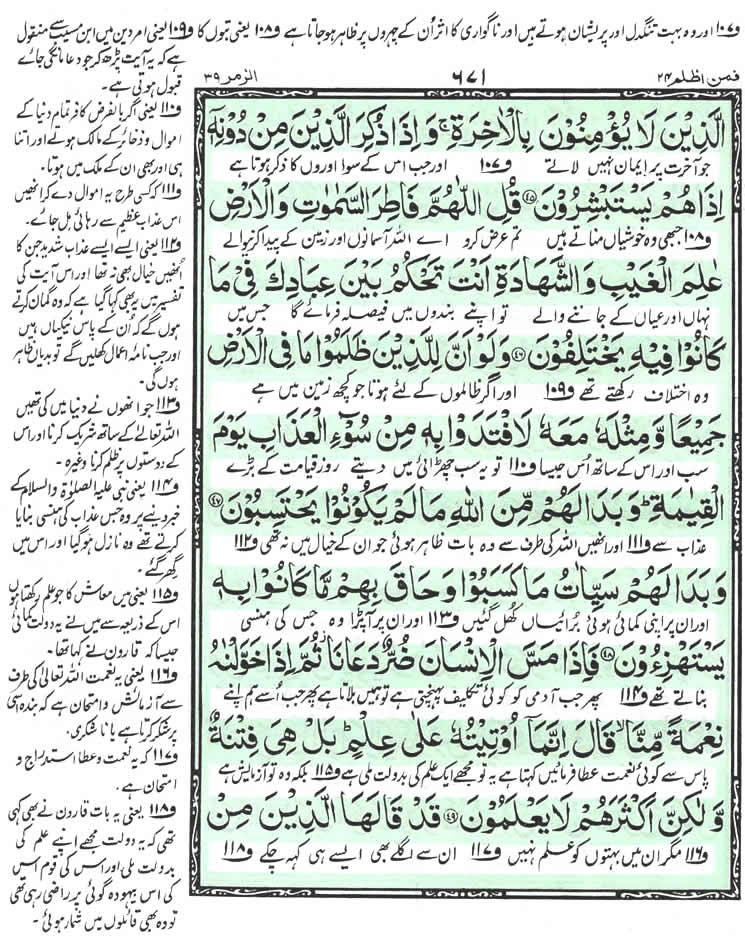 و۱۰۷ اور وہ بہت تنگدل اور پریشان ہوتے ہیں اور ناگواری کا اثر اُن کے چہروں پر ظاہر ہو جاتا ہے و۱۰۸ یعنی بتوں کا و۱۰۹ یعنی امر دین میں ابن مسیب سے منقول
ہے کہ یہ آیت پڑھ کر جو دعا مانگی جائے
قبول ہوتی ہے۔
و۱۱۰ یعنی اگر بالفرض کافر تمام دنیا کے
اموال و ذخائر کے مالک ہوتے اور اتنا
ہی اور بھی ان کے ملک میں ہوتا۔
و۱۱۱ کہ کسی طرح یہ اموال دے کر انھیں
اس عذاب عظیم سے رہائی مل جائے۔
و۱۱۲ یعنی ایسے ایسے عذاب شدید جن کا
اُنھیں خیال بھی نہ تھا اور اس آیت کی
تفسیر میں یہ بھی کہا گیا ہے کہ وہ گمان کرتے
ہوں گے کہ اُن کے پاس نیکیاں ہیں
اور جب نامۂ اعمال کھلیں گے تو بدیاں ظاہر
ہوں گی۔
و۱۱۳ جو انھوں نے دنیا میں کی تھیں
اللہ تعالیٰ کے ساتھ شریک کرنا اور اس
کے دوستوں پر ظلم کرنا وغیرہ۔
و۱۱۴ یعنی نبی علیہ الصلوٰۃ والسلام کے
خبر دینے پر وہ جس عذاب کی ہنسی بنایا
کرتے تھے وہ نازل ہو گیا اور اس میں
گھر گئے۔
و۱۱۵ یعنی میں معاش کا جو علم رکھتا ہوں
اس کے ذریعہ سے میں نے یہ دولت کمائی
جیسا کہ قارون نے کہا تھا۔
و۱۱۶ یعنی یہ نعمت اللہ تعالیٰ کی طرف
سے آزمائش و امتحان ہے کہ بندہ اسی
پر شکر کرتا ہے یا ناشکری۔
و۱۱۷ کہ یہ نعمت و عطا استدراج و
امتحان ہے۔
و۱۱۸ یعنی یہ بات قارون نے بھی کہی
تھی کہ یہ دولت مجھے اپنے علم کی
بدولت ملی اور اس کی قوم اس
کی اس بیہودہ گوئی پر راضی رہی تھی
تو وہ بھی قائلوں میں شمار ہوئی۔
فمن اظلم ۲۴ ۶۷۱ الزمر ۳۹
الَّذِيْنَ لَا يُؤْمِنُوْنَ بِالْاٰخِرَةِ ۚ وَاِذَا ذُكِرَ الَّذِيْنَ مِنْ دُوْنِهٖۤ
جو آخرت پر ایمان نہیں لاتے و۱۰۷ اور جب اس کے سوا اوروں کا ذکر ہوتا ہے
اِذَا هُمْ يَسْتَبْشِرُوْنَ ﴿۴۵﴾ قُلِ اللّٰهُمَّ فَاطِرَ السَّمٰوٰتِ وَالْاَرْضِ
و۱۰۸ جبھی وہ خوشیاں مناتے ہیں تم عرض کرو اے اللہ آسمانوں اور زمین کے پیدا کرنے والے
عٰلِمَ الْغَيْبِ وَالشَّهَادَةِ اَنْتَ تَحْكُمُ بَيْنَ عِبَادِكَ فِيْ مَا
نہاں اور عیاں کے جاننے والے تو اپنے بندوں میں فیصلہ فرمائے گا جس میں
كَانُوْا فِيْهِ يَخْتَلِفُوْنَ ﴿۴۶﴾ وَلَوْ اَنَّ لِلَّذِيْنَ ظَلَمُوْا مَا فِي الْاَرْضِ
وہ اختلاف رکھتے تھے و۱۰۹ اور اگر ظالموں کے لئے ہوتا جو کچھ زمین میں ہے
جَمِيْعًا وَّمِثْلَهٗ مَعَهٗ لَافْتَدَوْا بِهٖ مِنْ سُوْٓءِ الْعَذَابِ يَوْمَ
سب اور اس کے ساتھ اُس جیسا و۱۱۰ تو یہ سب چھڑائی میں دیتے روز قیامت کے بڑے
الْقِيٰمَةِ ؕ وَبَدَا لَهُمْ مِّنَ اللّٰهِ مَا لَمْ يَكُوْنُوْا يَحْتَسِبُوْنَ ﴿۴۷﴾
عذاب سے و۱۱۱ اور انھیں اللہ کی طرف سے وہ بات ظاہر ہوئی جو ان کے خیال میں نہ تھی و۱۱۲
وَبَدَا لَهُمْ سَيِّاٰتُ مَا كَسَبُوْا وَحَاقَ بِهِمْ مَّا كَانُوْا بِهٖ
اور ان پر اپنی کمائی ہوئی برائیاں کھل گئیں و۱۱۳ اور ان پر آپڑا وہ جس کی ہنسی
يَسْتَهْزِءُوْنَ ﴿۴۸﴾ فَاِذَا مَسَّ الْاِنْسَانَ ضُرٌّ دَعَانَا ثُمَّ اِذَا خَوَّلْنٰهُ
بناتے تھے و۱۱۴ پھر جب آدمی کو کوئی تکلیف پہنچتی ہے تو ہمیں بلاتا ہے پھر جب اُسے ہم اپنے
نِعْمَةً مِّنَّا ۙ قَالَ اِنَّمَاۤ اُوْتِيْتُهٗ عَلٰى عِلْمٍ ؕ بَلْ هِيَ فِتْنَةٌ
پاس سے کوئی نعمت عطا فرمائیں کہتا ہے یہ تو مجھے ایک علم کی بدولت ملی ہے و۱۱۵ بلکہ وہ تو آزمائش ہے
وَّلٰكِنَّ اَكْثَرَهُمْ لَا يَعْلَمُوْنَ ﴿۴۹﴾ قَدْ قَالَهَا الَّذِيْنَ مِنْ
و۱۱۶ مگر ان میں بہتوں کو علم نہیں و۱۱۷ ان سے اگلے بھی ایسے ہی کہہ چکے و۱۱۸